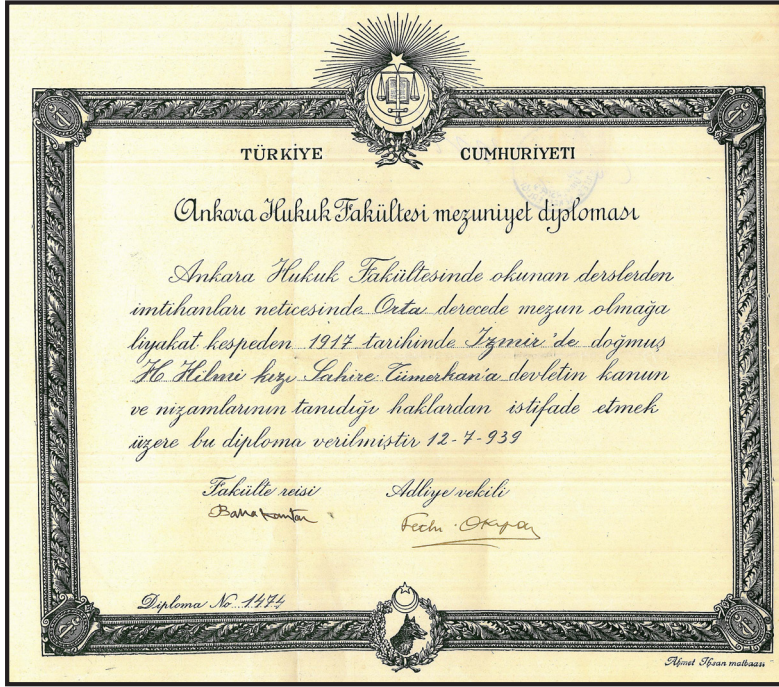 TÜRKİYE CUMHURİYETI
Ankara Hukuk Fakültesi mezuniyet diploması
Ankara Hukuk Fakültesinde okunan derslerden
imtihanları neticesinde Orta derecede mezun olmağa
liyakat kespeden 1917 tarihinde Izmir'de doğmuş
H. Hilmi kızı Sahire Tümerkan'a devletin kanun
ve nizamlarının tanıdığı haklardan istifade etmek
üzere bu diploma verilmiştir 12-7-939
Fakülte reisi Adliye vekili
Baha Kantar Fethi Okyar
Diploma No 1474
Ahmet Ihsan matbaası